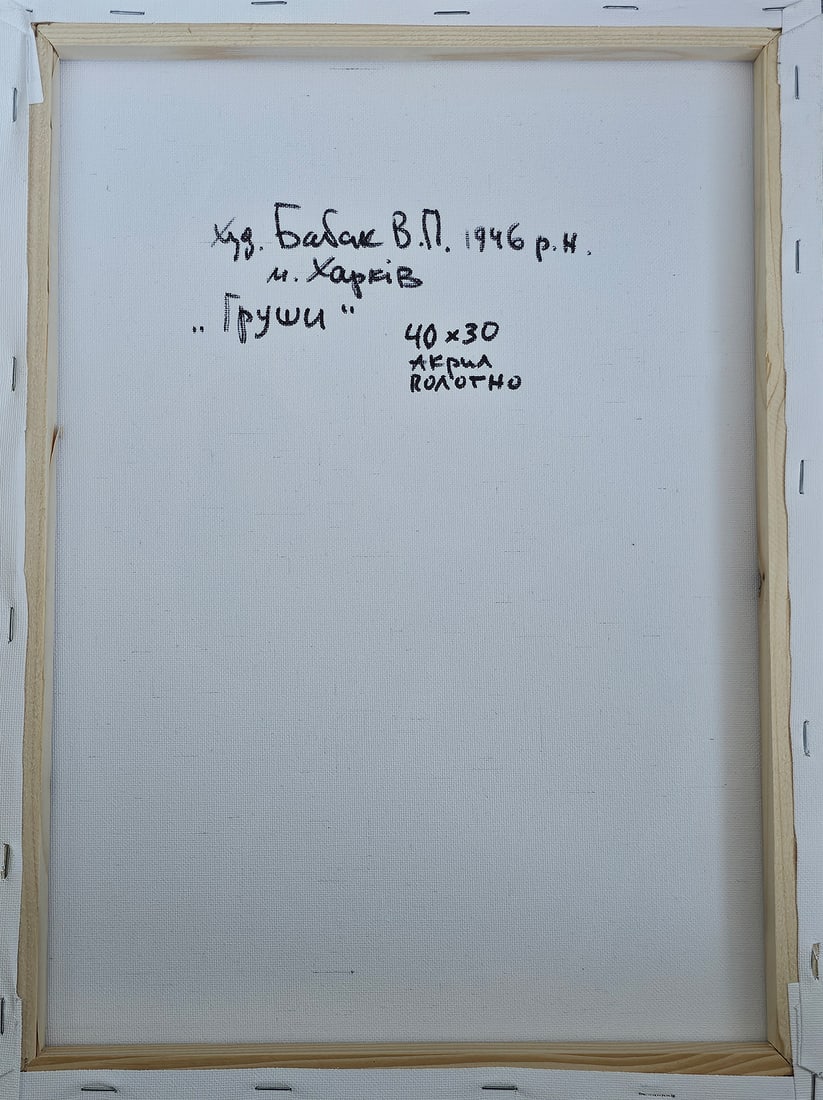 Худ. Бабак В.П. 1946 р.н.
м. Харків
„Груши"
40х30
Акрил
полотно